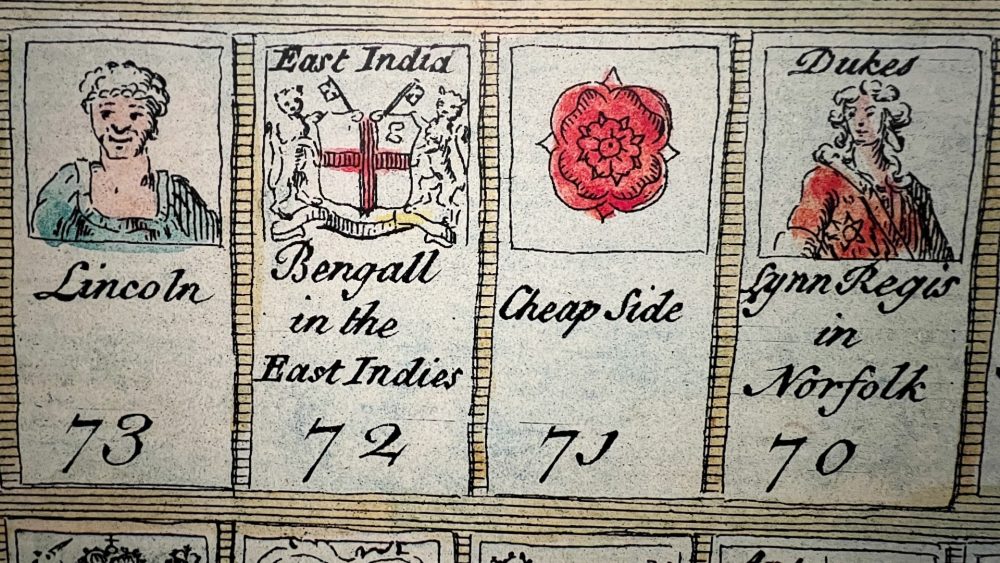 Lincoln
73
East India
Bengall
in the
East Indies
72
Cheap Side
71
Dukes
Lynn Regis
in
Norfolk
70